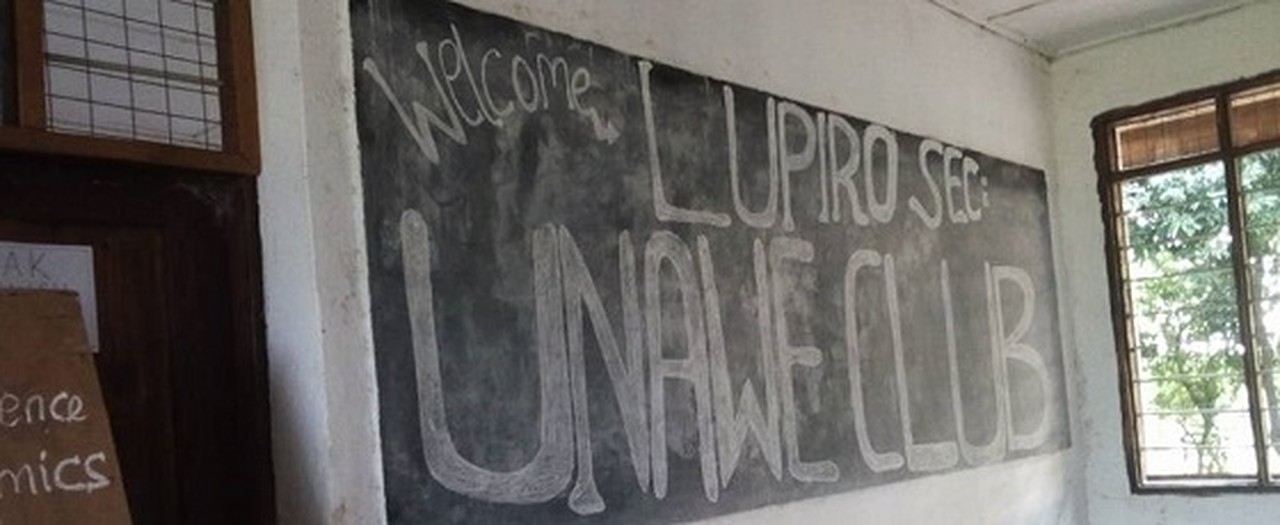 Welcome
LUPIRO SEC:
UNAWE CLUB
AK
ence
mics